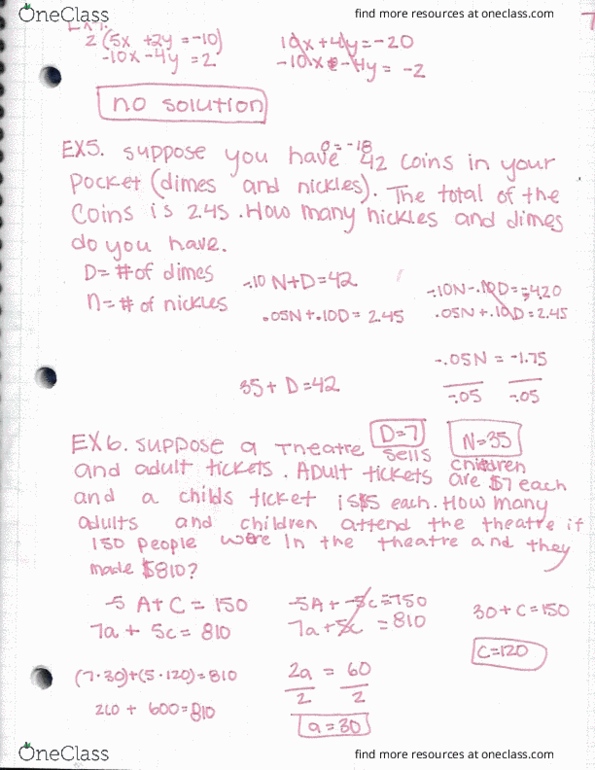 OneClass
find more resources at oneclass.com
7
EX4.
2(5x +2y =-10) 10x+4y=-20
-10x-4y =2 -10x-4y= -2
no solution
0=-18
EX5. suppose you have 42 coins in your
pocket (dimes and nickles). The total of the
coins is 2.45. How many nickles and dimes
do you have.
D= # of dimes
n= # of nickles
-.10 N+D=42
.05N+.10D = 2.45
-.10N-.10D=-4.20
.05N+.10D=2.45
-.05N = -1.75
-.05 -.05
35+ D=42
D=7
N=35
EX6. suppose a Theatre sells children
and adult tickets. Adult tickets are $7 each
and a childs ticket is $5 each. How many
adults and children attend the theatre if
150 people were in the theatre and they
made $810?
-5 A+C = 150
7a + 5c = 810
-5A+-5c=750
7a+5c =810
30+C=150
C=120
(7·30)+(5·120)=810
210 + 600=810
2a = 60
2 2
a=30
OneClass
find more resources at oneclass.com